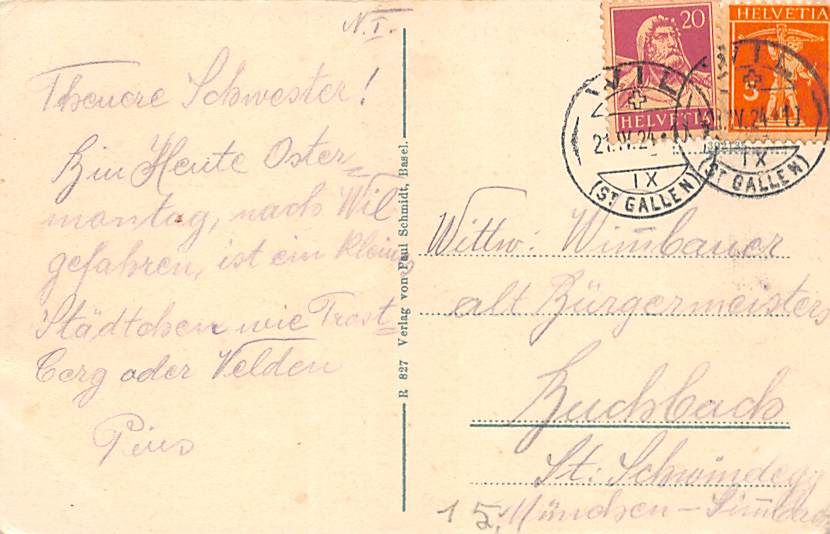 N. I.
Theuere Schwester!
Bin Heute Oster-
montag, nach Wil
gefahren, ist ein kleines
Städtchen wie Trost-
berg oder Velden
Pius
R. 827 Verlag von Paul Schmidt, Basel.
20
HELVETIA
HELVETIA
WIL
21.IV.24
IX
(ST GALLEN)
WIL
IV.24
IX
(ST GALLEN)
Wittw: Wim̅bauer
alt Bürgermeisters
Buchbach
St: Schwindegg
15. München – Sim̅bach